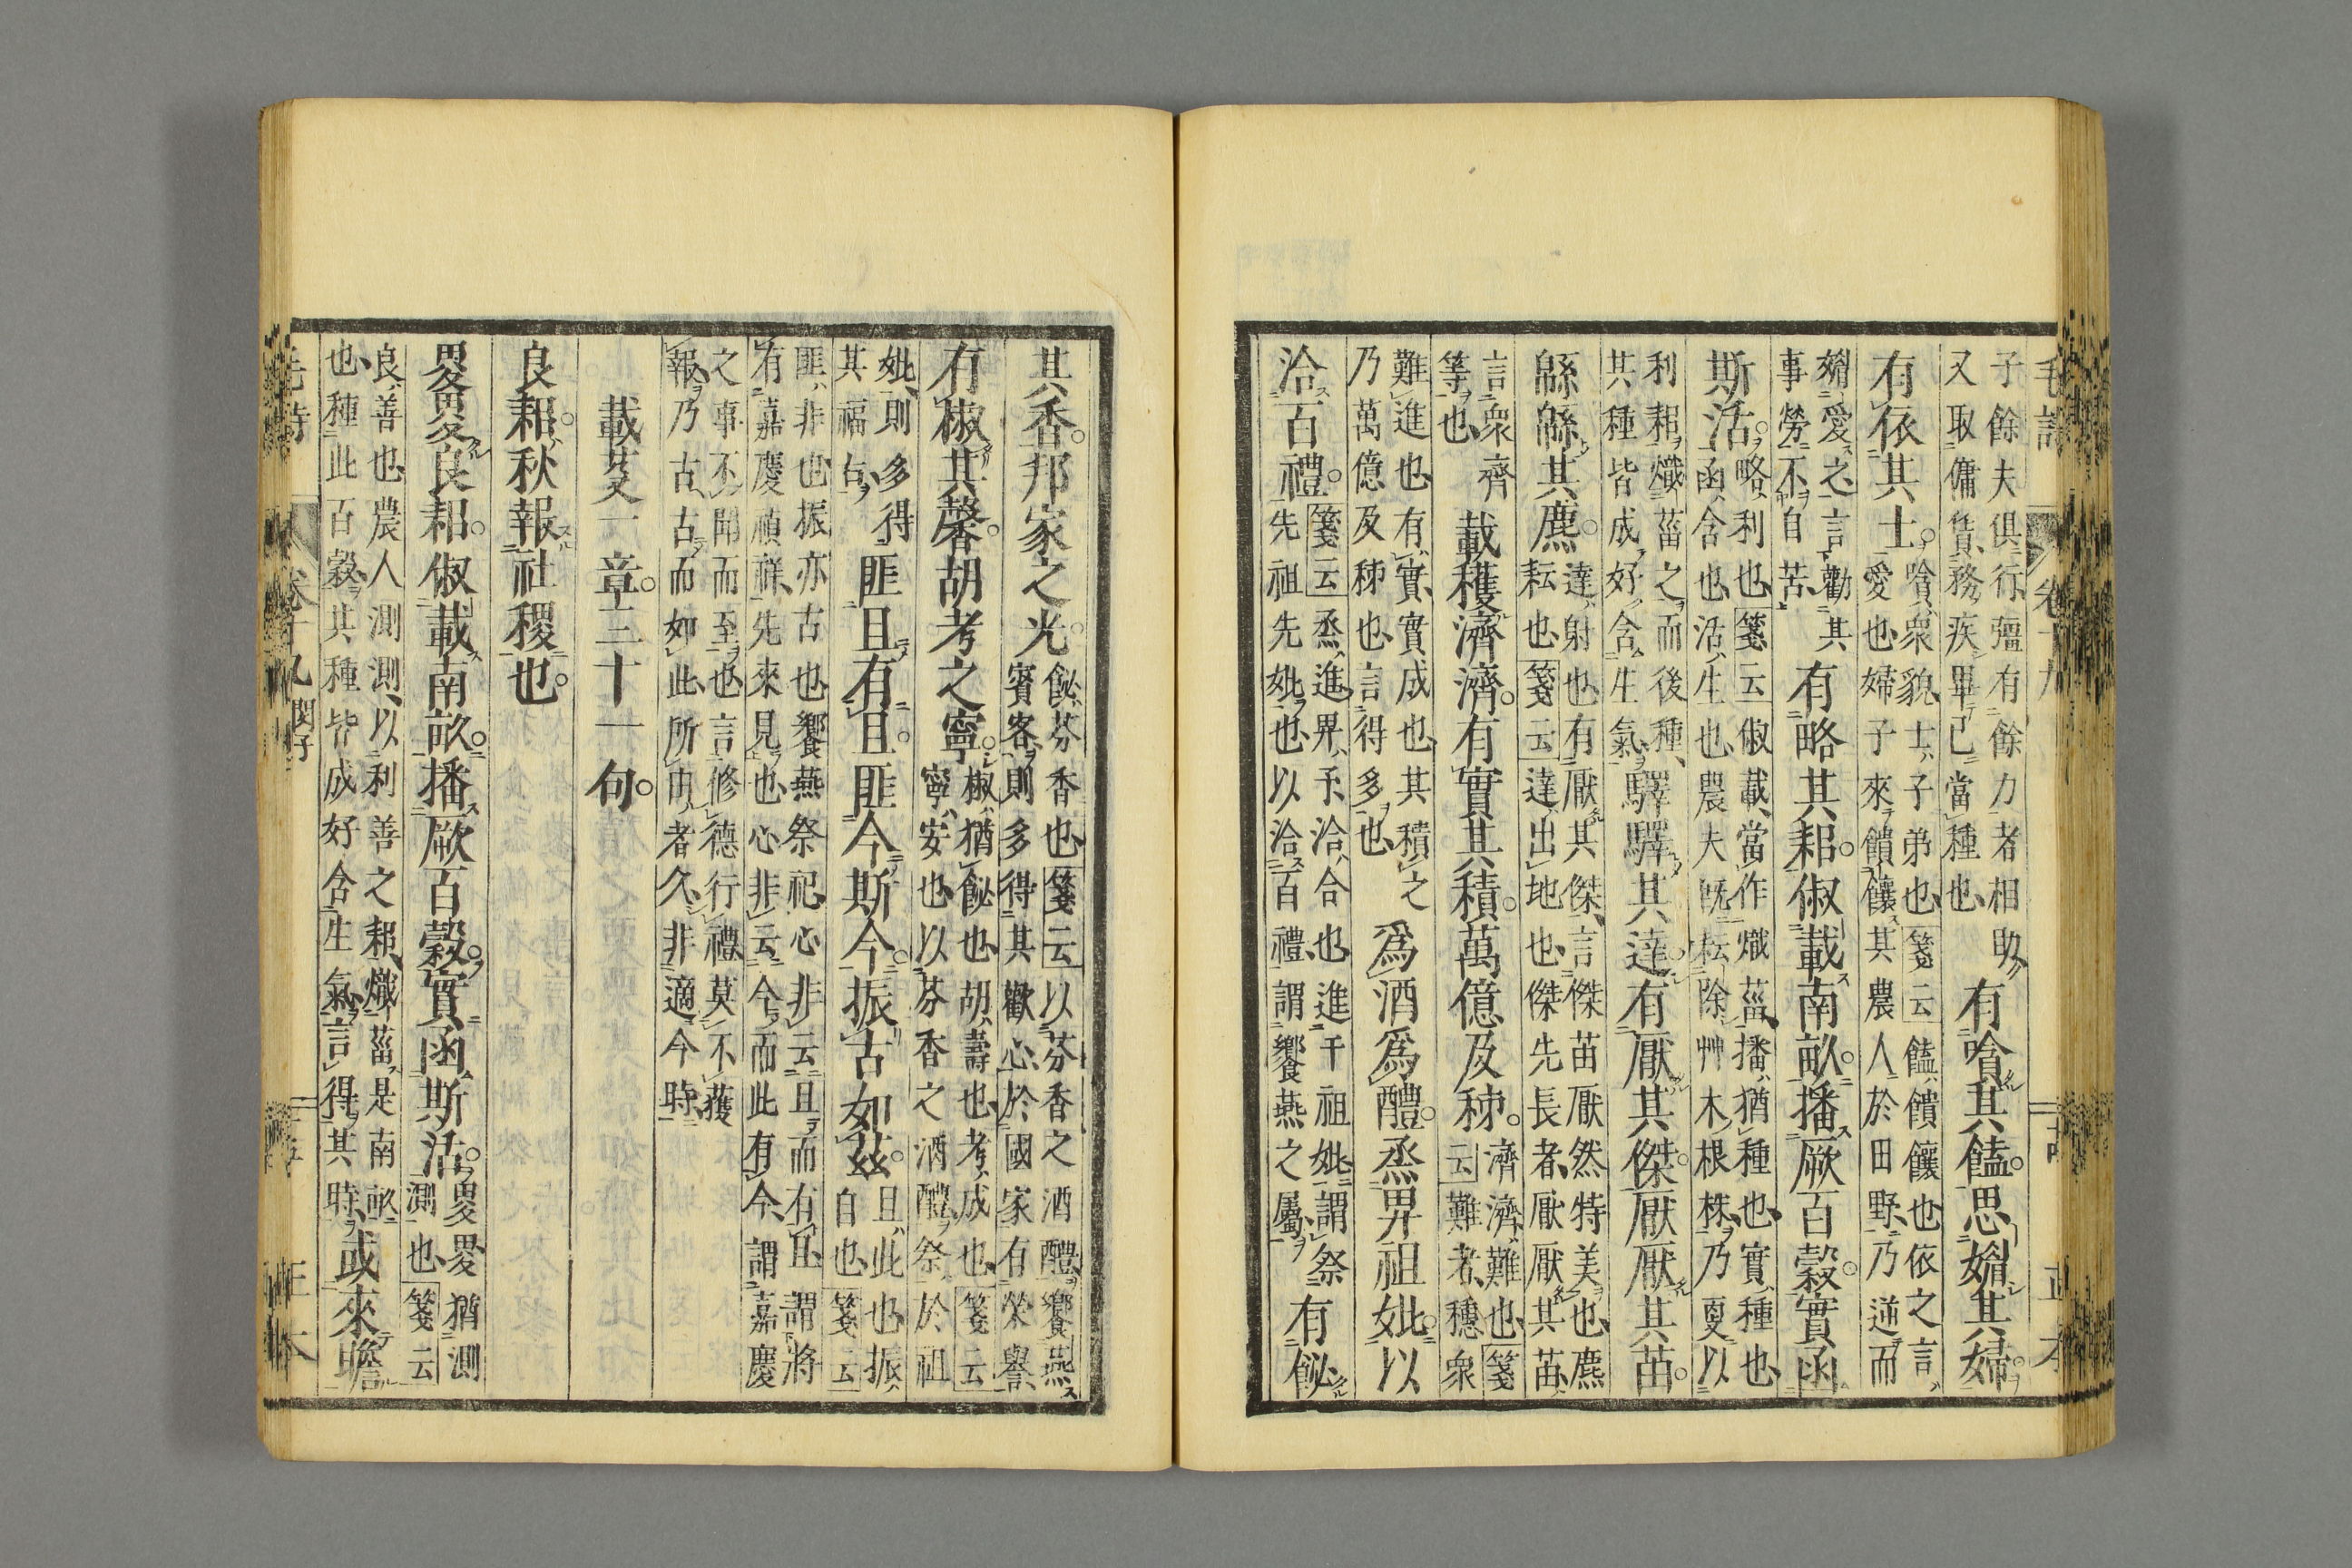 子餘夫俱行彊有餘力者相助
又取傭賃務疾畢已當種也
有嗿其饁思媚其婦
有依其士
嗿衆貌士子弟也箋云饁饋饟也依之言
愛也婦子來饋饟其農人於田野乃逆而
媚愛之言勸其
事勞不自苦
有略其耜俶載南畝播厥百穀實函
斯活
略利也箋云俶載當作熾菑播猶種也實種也
函含也活生也農夫既耘除艸木根株乃更以
利耜熾菑之而後種
其種皆成好含生氣
驛驛其達有厭其傑厭厭其苗
緜緜其麃
達射也有厭其傑言傑苗厭然特美也麃
耘也箋云達出地也傑先長者厭厭其苗
言衆齊
等也
載穫濟濟有實其積萬億及秭
濟濟難也箋
云難者穗衆
難進也有實實成也其積之
乃萬億及秭也言得多也
爲酒爲醴烝畀祖妣以
洽百禮
箋云烝進畀予洽合也進予祖妣謂祭
先祖先妣也以洽百禮謂饗燕之屬
有飶
其香邦家之光
飶芬香也箋云以芬香之酒醴饗燕
賓客則多得其歡心於國家有榮譽
有椒其馨胡考之寧
椒猶飶也胡壽也考成也箋云
寧安也以芬香之酒醴祭於祖
妣則多得
其福右
匪且有且匪今斯今振古如茲
且此也振
自也箋云
匪非也振亦古也饗燕祭祀心非云且而有且謂將
有嘉慶禎祥先來見也心非云今而此有今謂嘉慶
之事不聞而至也言修德行禮莫不獲
報乃古古而如此所由者久非適今時
載芟一章三十一句
良耜秋報社稷也
畟畟良耜俶載南畝播厥百穀實函斯活
畟畟猶測
測也箋云
良善也農人測測以利善之耜熾菑是南畝
也種此百穀其種皆成好含生氣言得其時
或來瞻